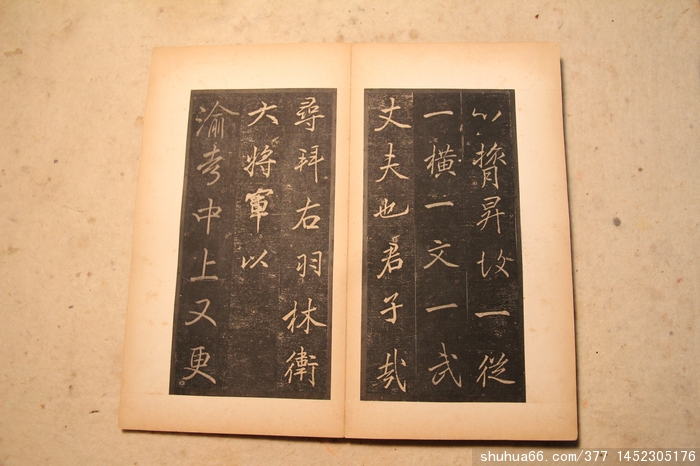 心膂昇故一從
一橫一文一武
丈夫也君子哉
尋拜右羽林衛
大將軍以
渝考中上又更
shuhua66.com/377 1452305176